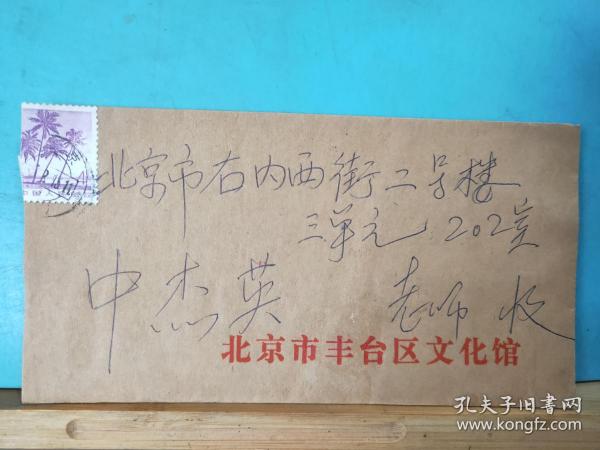 北京市右内西街二号楼
三单元 202室
中杰英 老师 收
北京市丰台区文化馆
孔夫子旧书网
www.kongfz.com